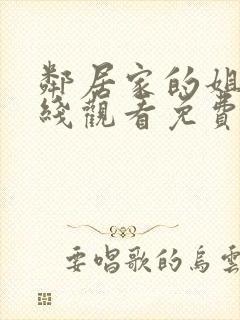 鄰居家的姐
綫觀看免費
要唱歌的烏雲